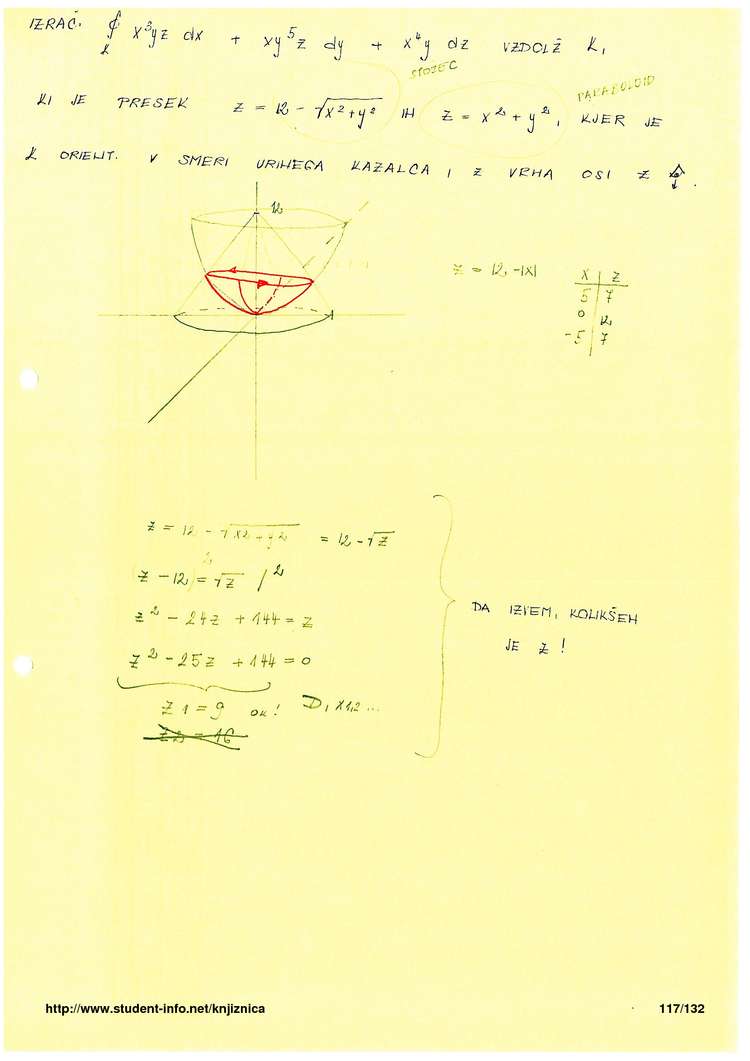 IZRAČ. ∮ x³yz dx + xy⁵z dy + x⁴y dz VZDOLŽ K,
K
STOŽEC
PARABOLOID
KI JE PRESEK z = 12 - √x²+y² IN z = x² + y², KJER JE
K ORIENT. V SMERI URINEGA KAZALCA, Z VRHA OSI Z
12
z = 12 - |x|
x | z
5 | 7
0 | 12
-5 | 7
z = 12 - √x²+y² = 12 - √z
(z - 12)² = √z /²
z² - 24z + 144 = z
z² - 25z + 144 = 0
z1 = 9 OK! D, x1,2 ...
z2 = 16
DA IZVEM, KOLIKŠEN
JE Z!
http://www.student-info.net/knjiznica
117/132